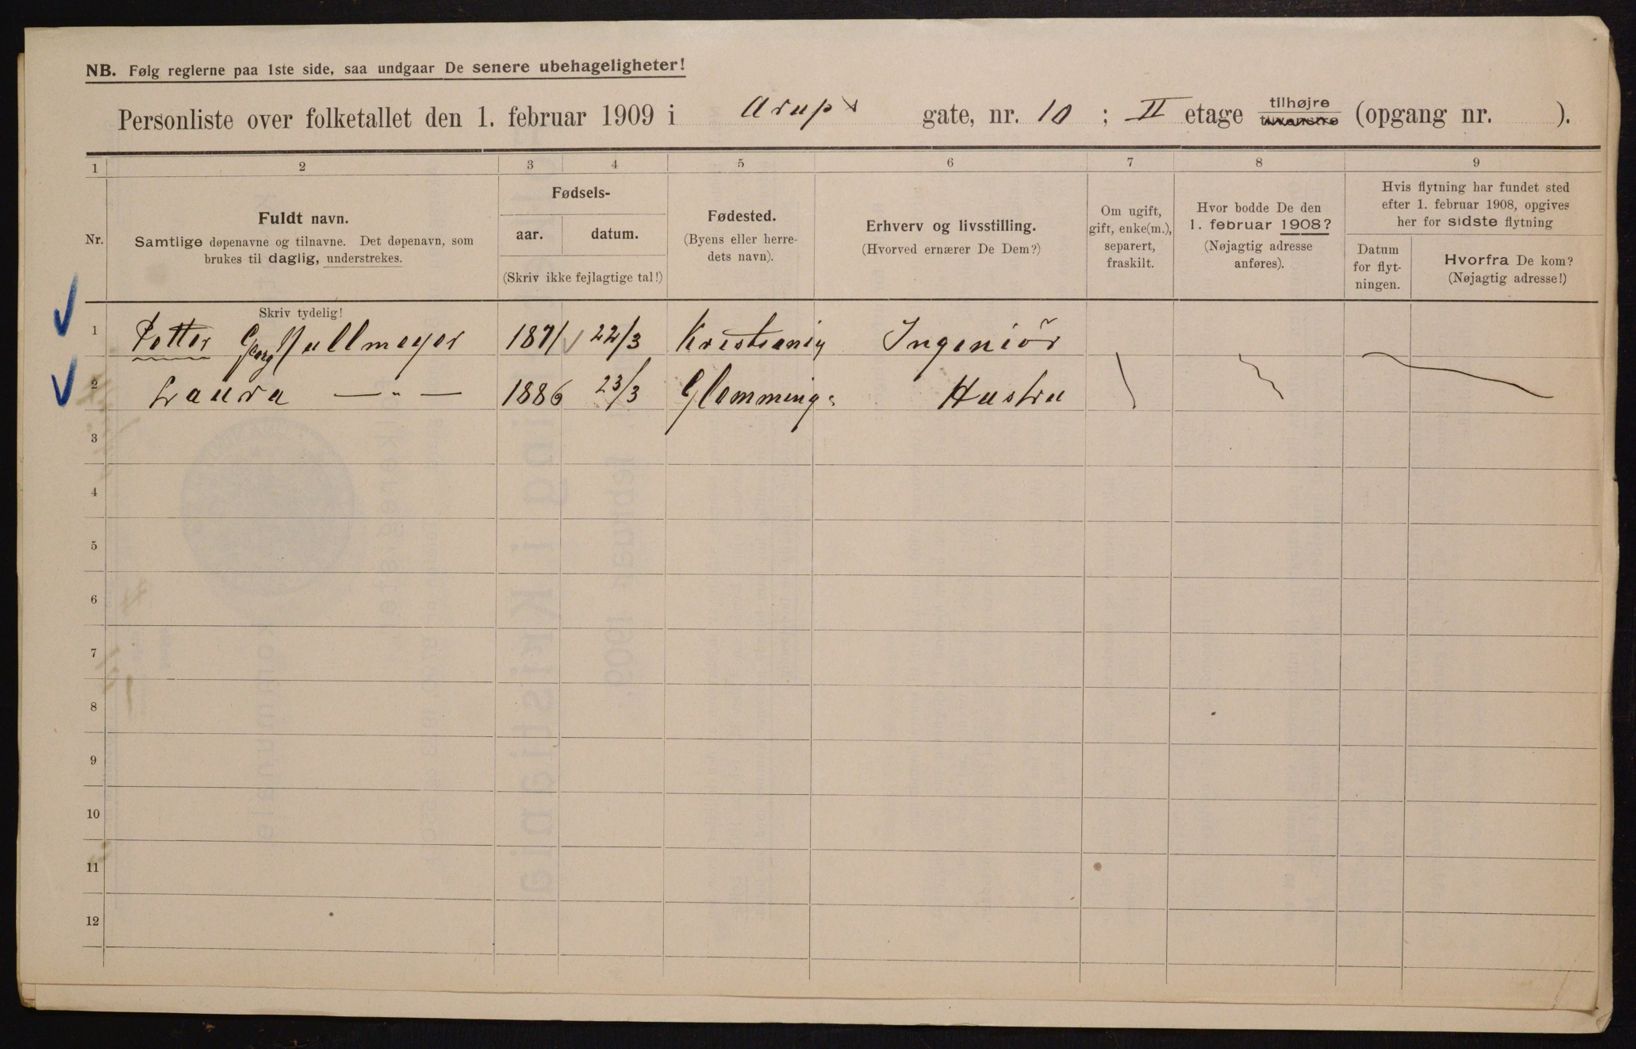 NB. Følg reglerne paa 1ste side, saa undgaar De senere ubehageligheter!
Personliste over folketallet den 1. februar 1909 i Arups gate, nr. 10 ; II etage tilhøjre tilvenstre (opgang nr. ).
1 2 3 4 5 6 7 8 9
Nr.
Fuldt navn.
Samtlige døpenavne og tilnavne. Det døpenavn, som
brukes til daglig, understrekes.
Fødsels-
aar. datum.
(Skriv ikke fejlagtige tal!)
Fødested.
(Byens eller herre-
dets navn).
Erhverv og livsstilling.
(Hvorved ernærer De Dem?)
Om ugift,
gift, enke(m.),
separert,
fraskilt.
Hvor bodde De den
1. februar 1908?
(Nøjagtig adresse
anføres).
Hvis flytning har fundet sted
efter 1. februar 1908, opgives
her for sidste flytning
Datum
for flyt-
ningen.
Hvorfra De kom?
(Nøjagtig adresse!)
Skriv tydelig!
1 Petter Georg 1871 22/3 Kristiania Ingeniör
2 Laura — „ — 1886 23/3 Glemminge Hustru
3
4
5
6
7
8
9
10
11
12